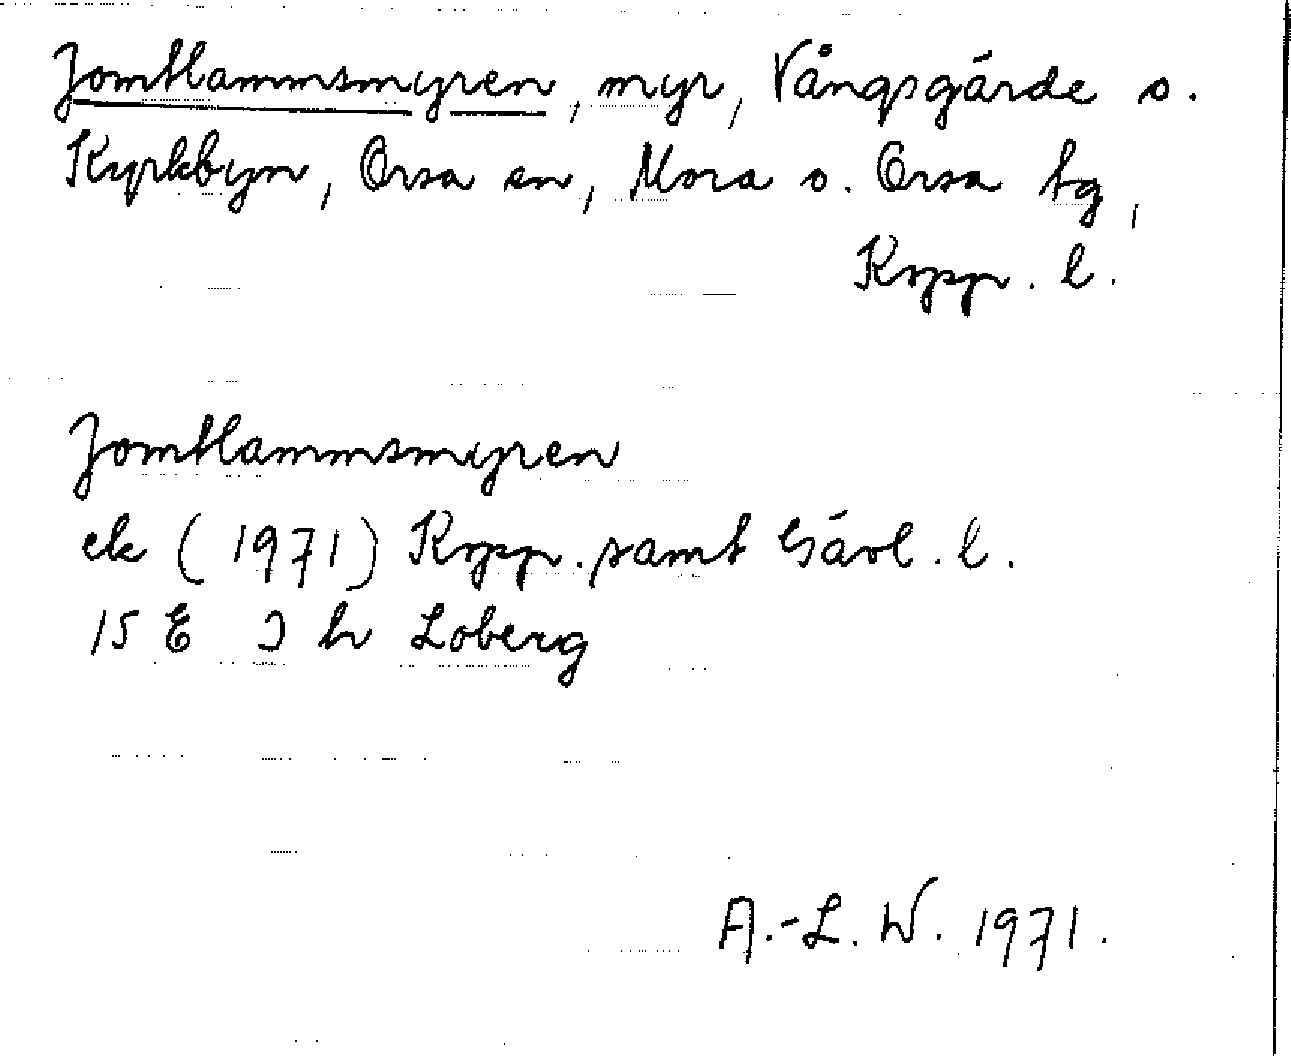 Jomtlammsmyren, myr, Vångsgärde o.
Kyrkbyn, Orsa sn, Mora o. Orsa tg,
Kopp. l.
Jomtlammsmyren
ek (1971) Kopp. samt Gävl. l.
15 E J h Loberg
A.-L. W. 1971.